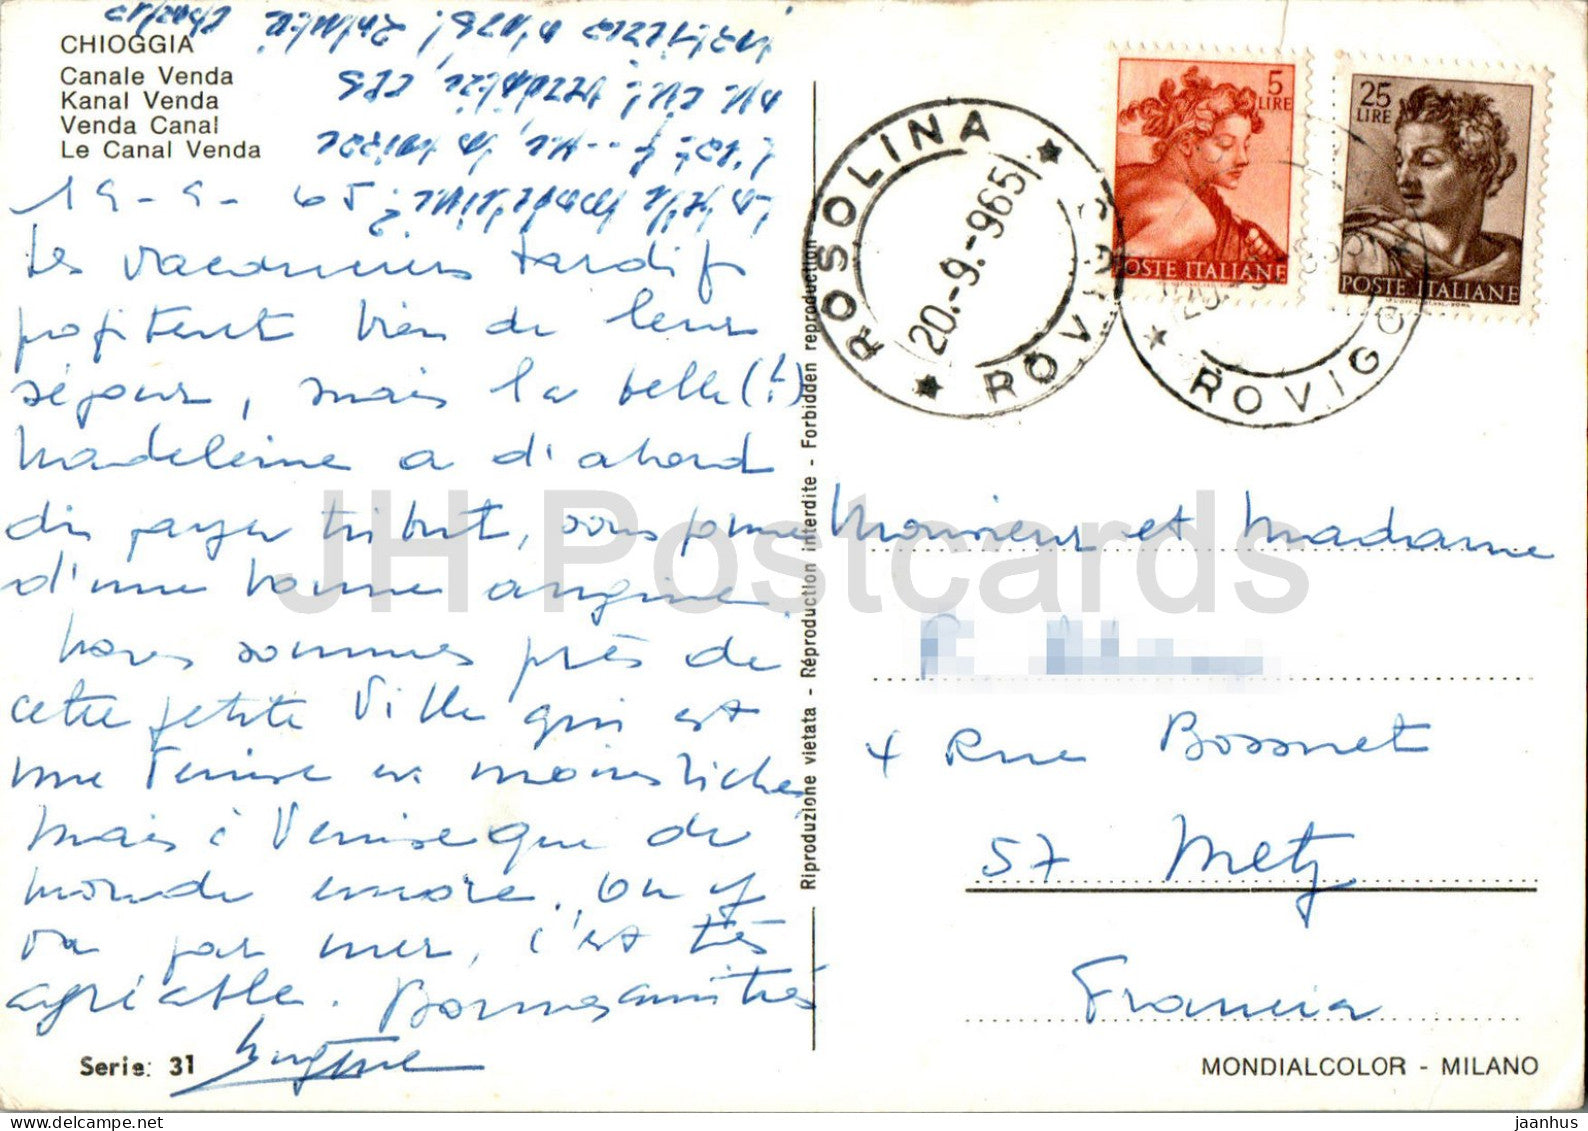 CHIOGGIA
Canale Venda
Kanal Venda
Venda Canal
Le Canal Venda
19-9-65
Les vacanciers tardifs
profitent bien de leur
séjour, mais la belle (!)
Madeleine a d'abord
dû payer tribut, sous forme
d'une bonne angine.
Nous sommes près de
cette petite ville qui est
une Venise en moins riche,
mais à Venise que de
monde encore. On y
va par mer, c'est très
agréable. Bonnes amitiés
La belle Madeleine?
Serie: 31
Riproduzione vietata - Réproduction interdite - Forbidden reproduction
ROSOLINA
20.-9.-965
ROVIGO
5
LIRE
POSTE ITALIANE
25
LIRE
POSTE ITALIANE
ROVIGO
Monsieur et Madame
4 Rue Bossuet
57 Metz
Francia
MONDIALCOLOR - MILANO
JH Postcards
jaanhus © www.delcampe.net